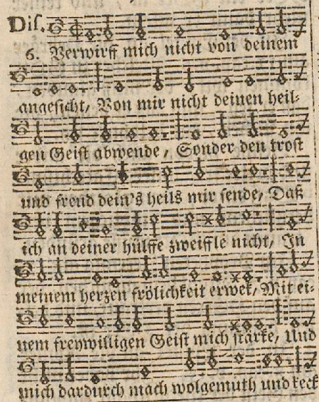 Dis.
6. Verwirff mich nicht von deinem
angesicht, Von mir nicht deinen heil-
gen Geist abwende, Sonder den trost
und freud dein's heils mir sende, Daß
ich an deiner hülffe zweiffle nicht, In
meinem herzen frölichkeit erwek, Mit ei-
nem freywilligen Geist mich stärke, Und
mich dardurch mach wolgemuth und keck